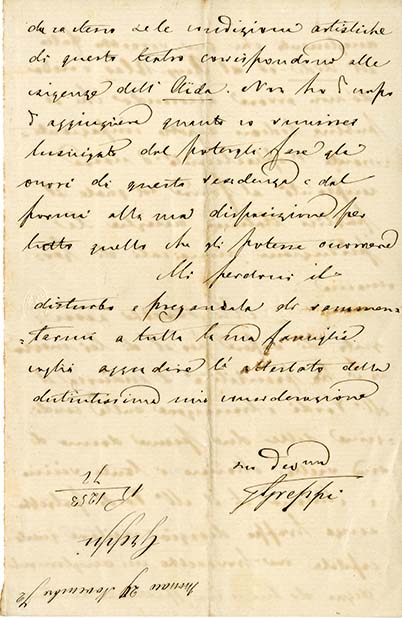 da se stesso se le condizioni artistiche
di questo teatro corrispondono alle
esigenze dell'Aïda. Non ho d'uopo
d'aggiungere quanto io rimarrei
lusingato dal potergli fare gli
onori di questa residenza e dal
pormi alla sua disposizione per
tutto quello che gli potesse occorrere
Mi perdoni il
disturbo e pregandola di rammen-
=tarmi a tutta la sua famiglia
voglia aggradire l'attestato della
distintissima mia considerazione
suo Devmo
GGreppi
15 1253
71
Greppi
Monaco 29 Novembre 72